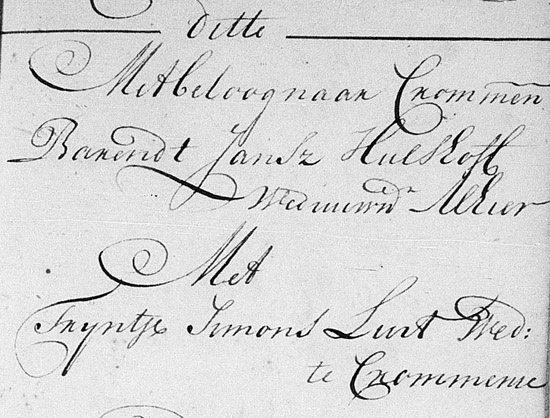 ditto
Met beloog naar Crommen
Barendt Jansz Hulskoff
Weduwnr Alhier
Met
Tryntje Simons Luyt Wed:
te Crommenie